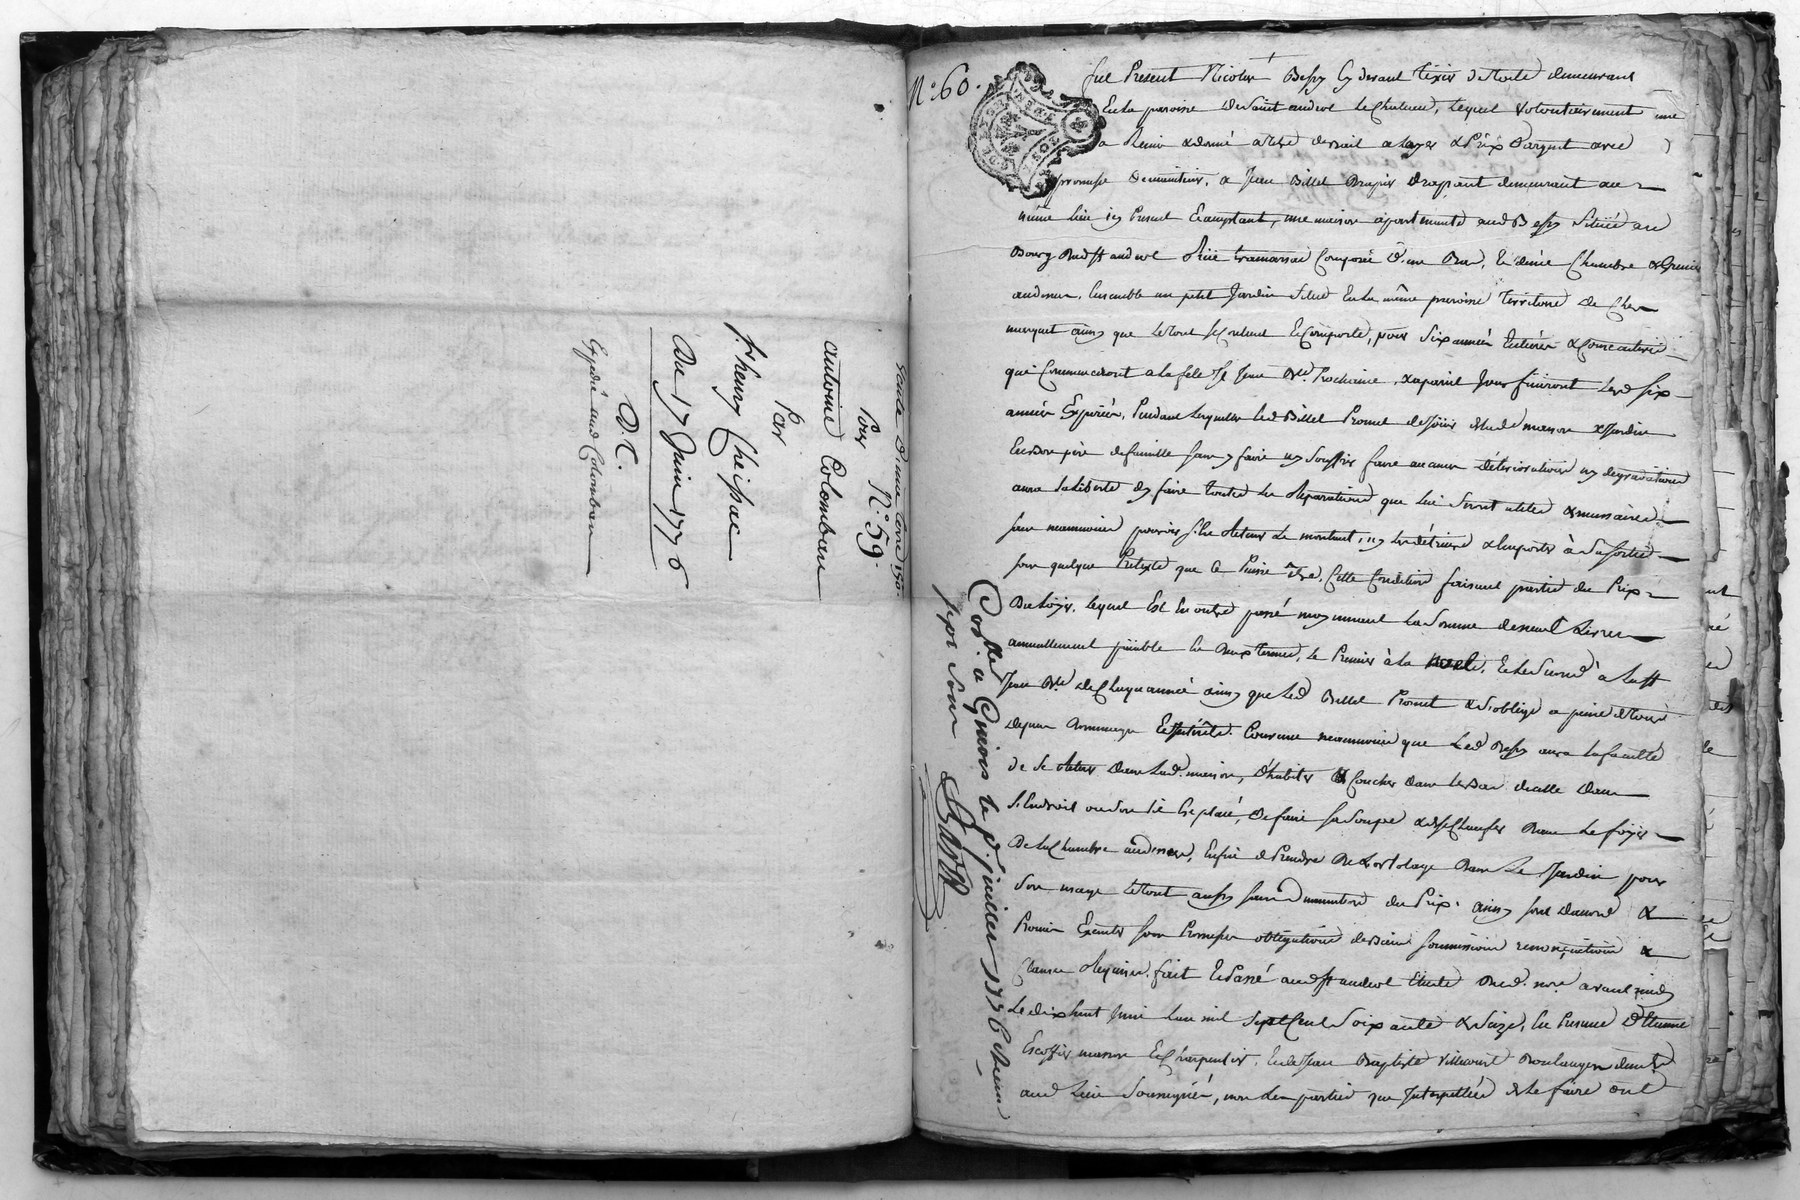 vente d'une terre 150#
Pour N.° 59.
antoine Colombau
Par
f.s henry Cheissac
Du 17 Juin 1776
D. C.
Expédié aud Colomban
N.° 60.
fut Present Nicolas Bessy Cy devant tixier de toile demeurant
En la paroisse De Saint andeol le Chateau, lequel volontairement
a Remis & donné a titre de bail a loyer & Prix D'argent avec
promesse de maintenir, a Jean Billet drapier drapant demeurant au
même lieu icy Present Et acceptant, une maison apartenante aud Bessy Située au
Bourg Dud St andeol Rüe Composée D'une Bas, Et d'une Chambre & Grenier
audessus, Ensemble un petit Jardin Situé En la même paroisse territoire De
ainsy que le tout Se Contient Et Comporte, pour Six années Entières & Consecutives
qui Commenceront a la fete St Jean Bte Prochaine, & a pareil Jour finiront lesd Six
années Expirées, Pendant lesquelles led Billet Promet de Joüir de lad maison & Jardin
En bon père de famille sans y faire ny Souffrir faire aucune déterioration ny degradations
aura la liberté d'y faire toutes les Reparations que lui Seront utiles & necessaires
sans neanmoins pouvoir S'en Retenir Le montant, ny les détruire & Emporter à Sa Sortie
sous quelque Pretexte que Ce Puisse être, Cette Condition faisant partie du Prix
Du Loyer, lequel Est En outre passé moyennant la Somme de neuf Livres
annuellement païable En deux termes, le Premier à la noel, Et le Second à la St
Jean Bte de Chaque année ainsy que led Billet Promet & S'oblige a peine de tous
Depens Dommages Et intérêts. Convenu neanmoins que led Bessy aura la faculté
de Se Retirer Dans lad. maison, d'habiter & Coucher Dans le Bas d'icelle Dans
l'Endroit ou Son lit Est placé, De faire sa Soupe & de se Chauffer Dans le foyer
De la Chambre audessus, Enfin de Prendre De L'ortolage Dans Le Jardin pour
Son usage Le tout aussy sans diminution du Prix. ainsy sont d'accord &
Promis Executer sous Promesses obligations de Biens Soumissions renonciations &
Clauses Requises. fait Et Passé aud St andeol Etude Dud. nore avant midy
Le dix huit Juin L'an mil Sept Cent Soixante & Seize, En Presence D'Etienne
Escoffier masson Et Charpentier, Et de Jean Baptiste Boulanger demt
aud Lieu Soussignés, non les parties pour Interpellées de le faire ont
Con.llé a Givors le 2. juillet 1776 Reçu
<br>